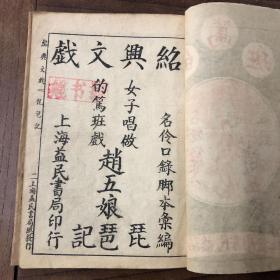 紹興文戲
名伶口錄脚本彙編
女子唱做
的篤班戲
趙五娘
琵琶記
上海益民書局印行